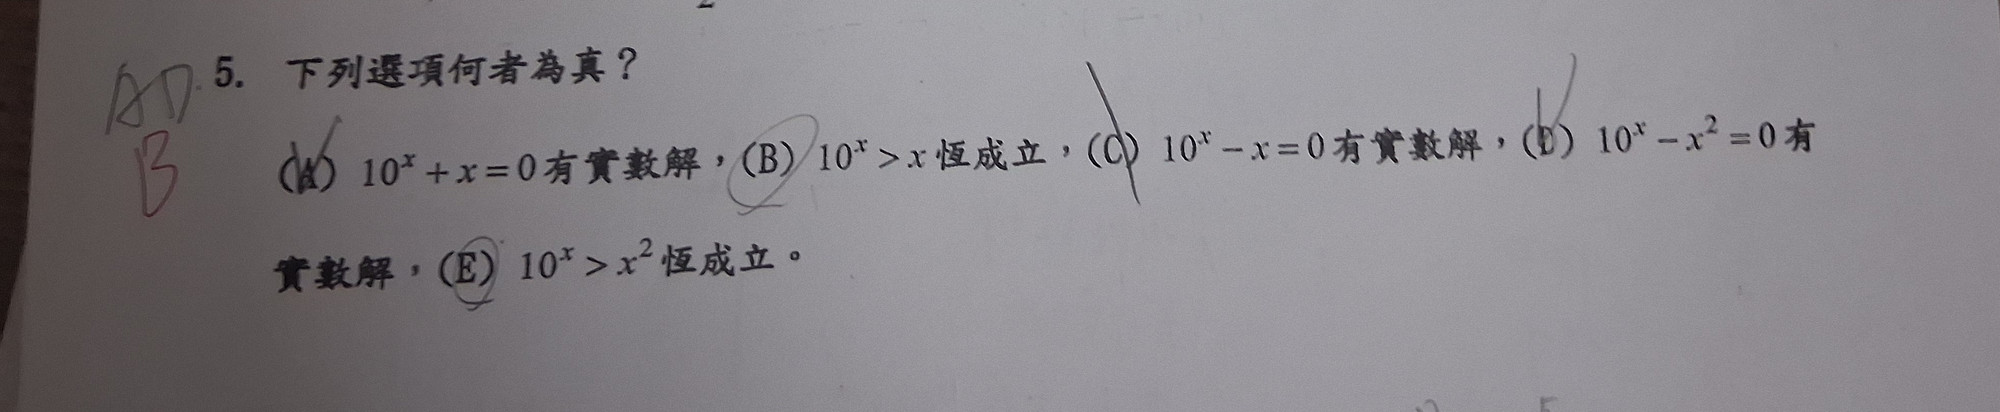 AD
B
5. 下列選項何者為真？
(A) 10ˣ + x = 0 有實數解，(B) 10ˣ > x 恆成立，(C) 10ˣ − x = 0 有實數解，(D) 10ˣ − x² = 0 有
實數解，(E) 10ˣ > x² 恆成立。